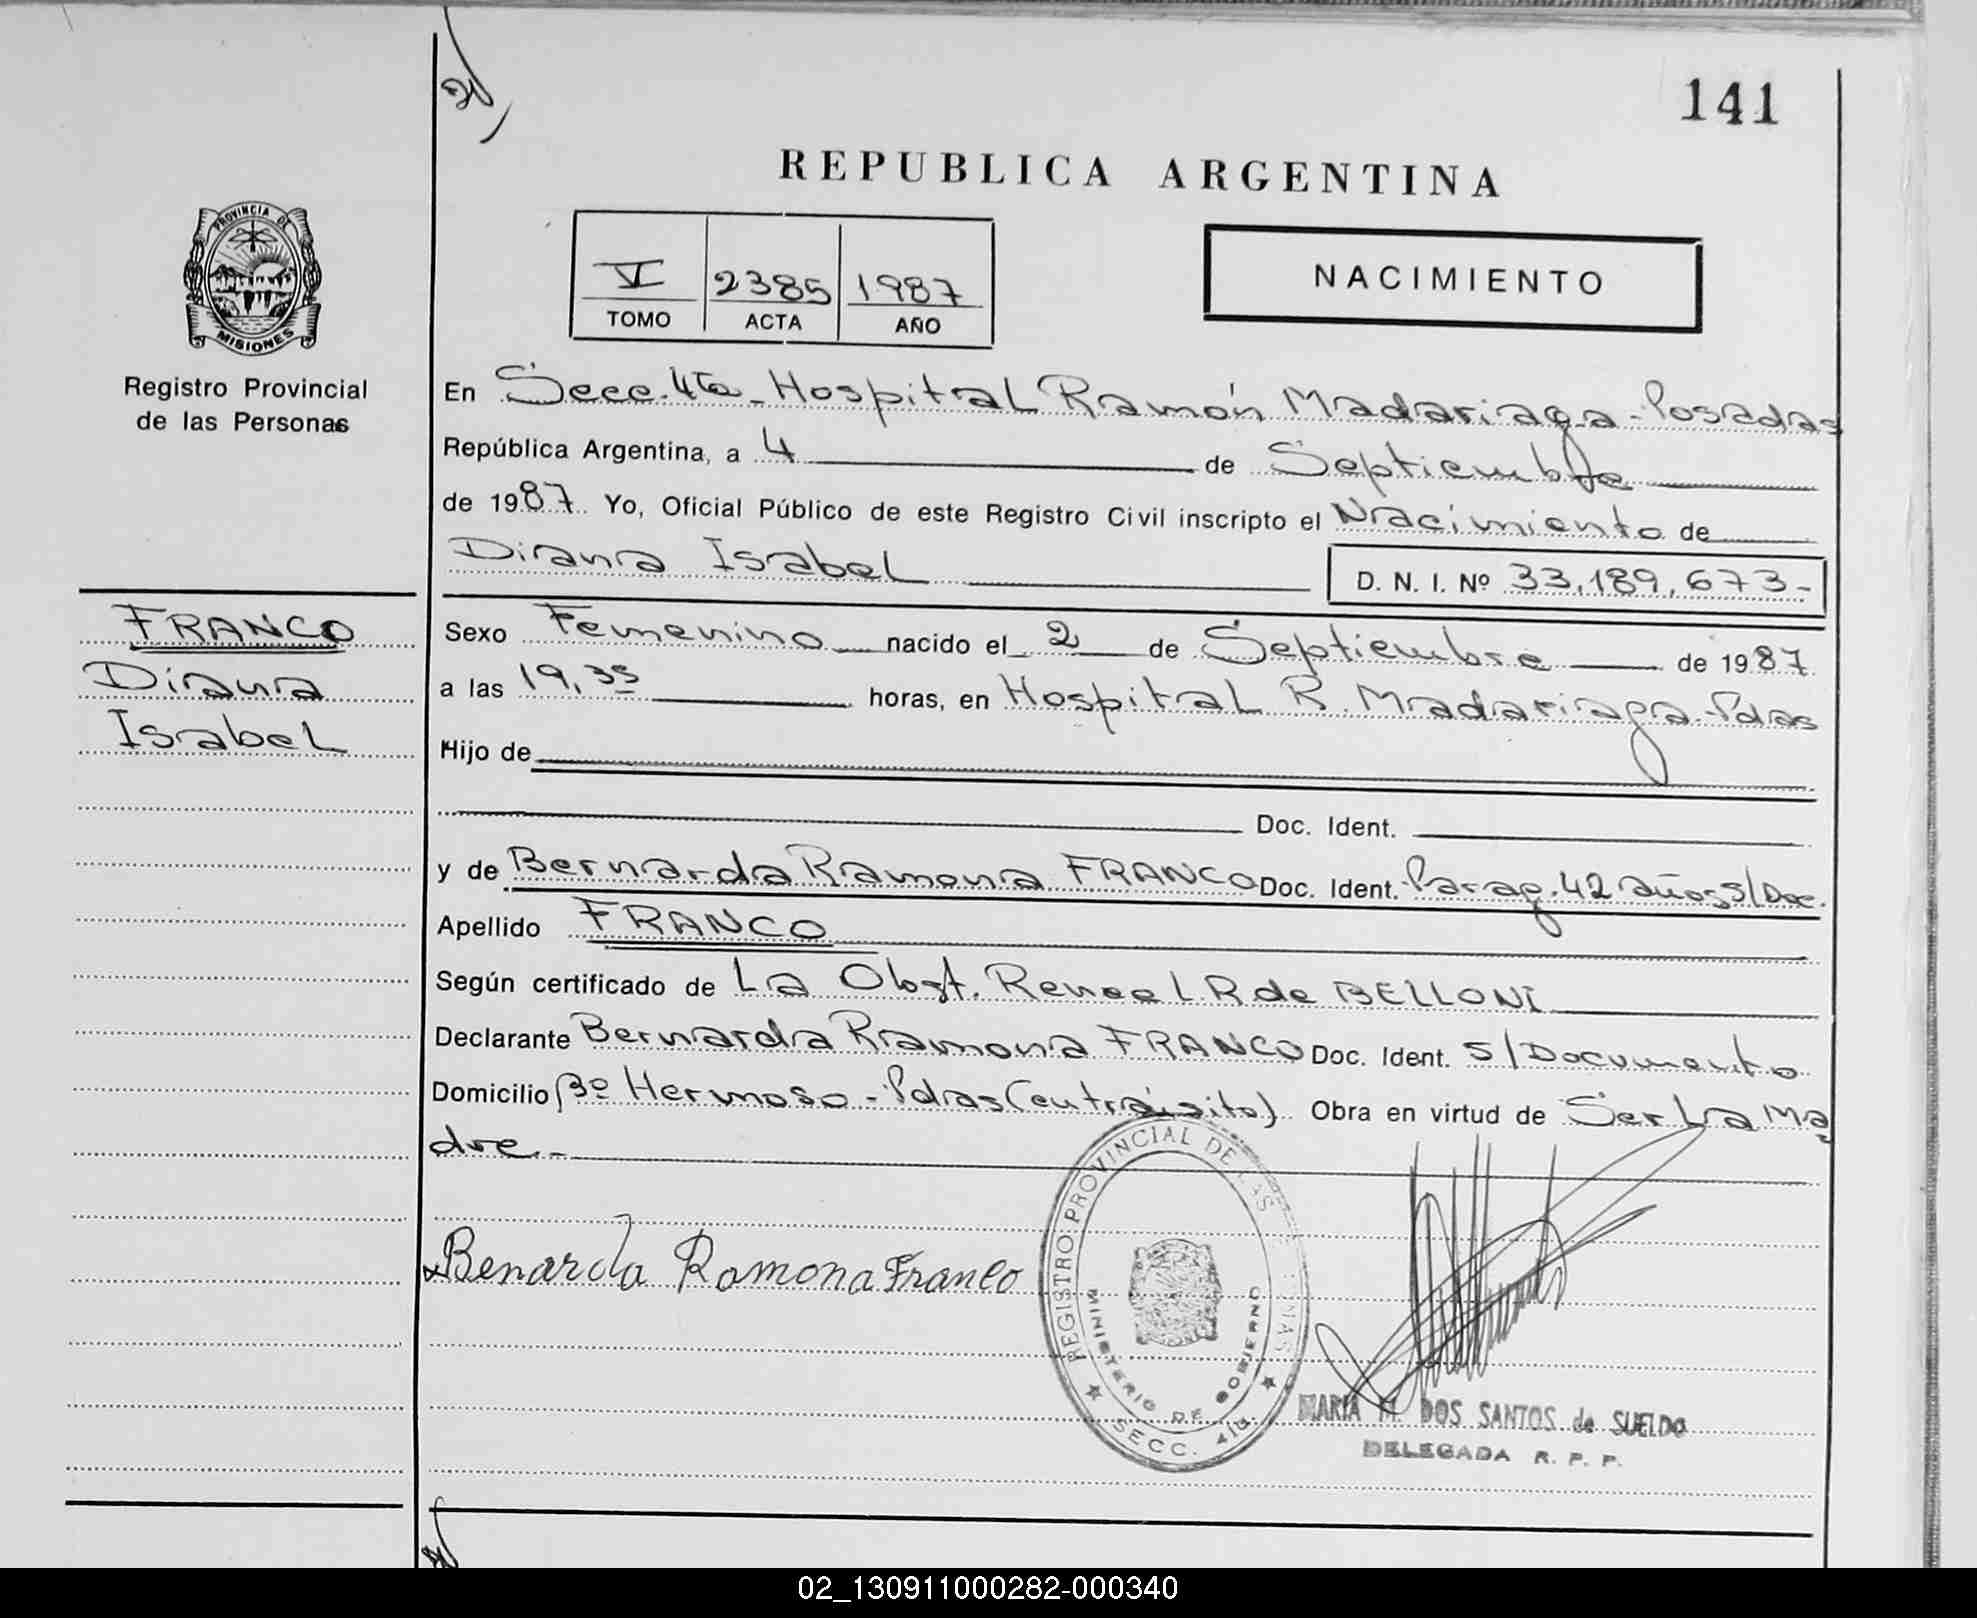 141
REPUBLICA ARGENTINA
PROVINCIA DE
MISIONES
Registro Provincial
de las Personas
V 2385 1987
TOMO ACTA AÑO
NACIMIENTO
En Secc. 4ta - Hospital Ramón Madariaga - Posadas
República Argentina, a 4 de Septiembre
de 1987. Yo, Oficial Público de este Registro Civil inscripto el Nacimiento de
Diana Isabel
D. N. I. Nº 33.189.673-
FRANCO
Diana
Isabel
Sexo Femenino nacido el 2 de Septiembre de 1987
a las 19,35 horas, en Hospital R. Madariaga - Pdas
Hijo de
Doc. Ident.
y de Bernarda Ramona FRANCO Doc. Ident. Parag. 42 años S/Doc.
Apellido FRANCO
Según certificado de La Obst. Renee L.R de BELLONI
Declarante Bernarda Ramona FRANCO Doc. Ident. S/Documento
Domicilio Bº Hermoso - Pdas (en tránsito) Obra en virtud de Ser La Ma
dre.-
Benarda Ramona Franco
REGISTRO PROVINCIAL DE LAS PERSONAS
MINISTERIO DE GOBIERNO
SECC. 4ta
MARIA M. DOS SANTOS de SUELDO
DELEGADA R. P. P.
02_130911000282-000340